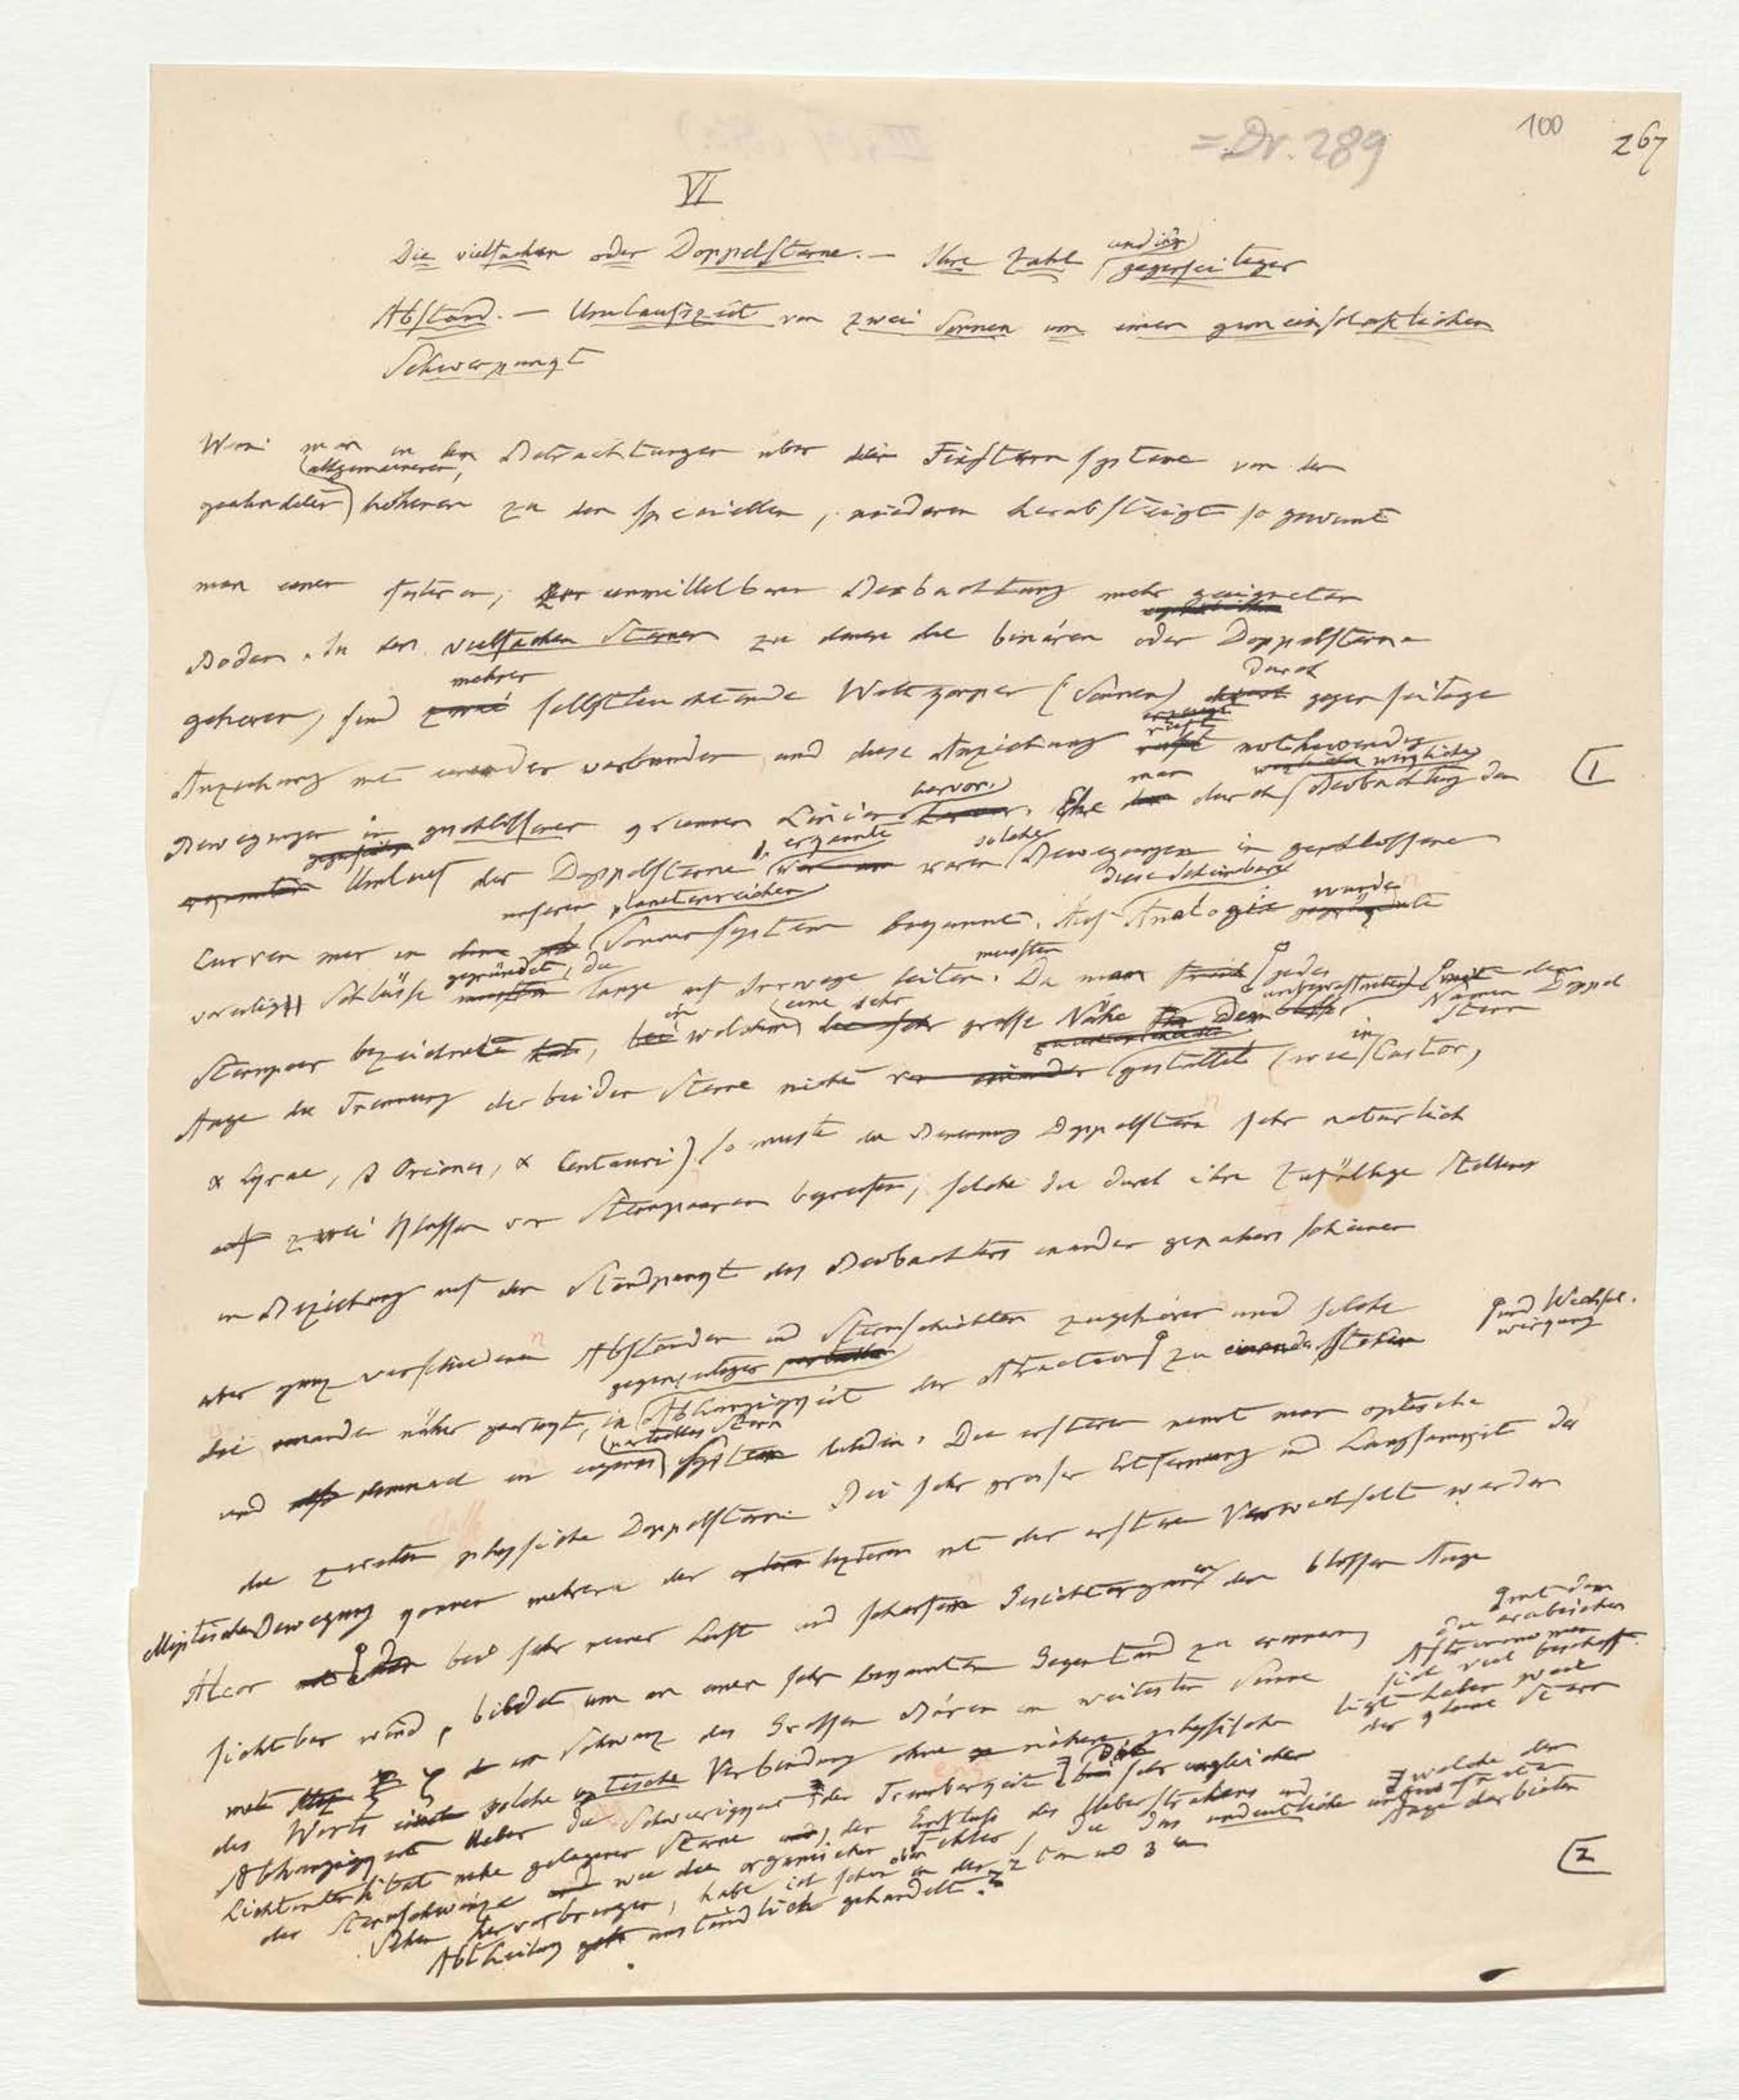 = Dr. 289
100
267
VI
Die vielfachen oder Doppelsterne. – Ihre Zahl und ihr gegenseitiger
Abstand. – Umlaufszeit von zwei Sonnen um einen gemeinschaftlichen
Schwerpunkt
Wenn man in den Betrachtungen über die Fixsternsysteme von den
geahndeten allgemeineren, höheren zu den speciellen, niederen herabsteigt so gewinnt
man einen festeren, zur unmittelbaren Beobachtung mehr geeigneten
Boden. In den vielfachen Sternen zu denen die binären oder Doppelsterne
gehören, sind mehrere selbstleuchtende Weltkörper (Sonnen) durch gegenseitige
Anziehung mit einander verbunden und diese Anziehung ruft nothwendig
Bewegungen in geschlossenen krummen Linien hervor. Ehe man durch wirkliche Beobachtung den
Umlauf der Doppelsterne erkannte waren solche Bewegungen in geschlossenen
Curven nur in unserem planetenreichen Sonnensystem bekannt. Auf diese scheinbare Analogie wurden
voreilig Schlüsse gegründet, die lange auf Irrwege leiten mussten. Da man jedes
Sternpaar bezeichnete, in welchem eine sehr grosse Nähe dem unbewaffneten
mit dem Namen Doppelstern
Auge die Trennung der beiden Sterne nicht gestattet (wie in Castor,
α Lyrae, β Orionis, α Centauri) so musste die Benennung Doppelstern sehr natürlich
zwei Klassen von Sternpaaren begreifen, solche die durch ihre zufällige Stellung
in Beziehung auf den Standpunkt des Beobachters einander genähert scheinen
aber ganz verschiedenen Abständen und Sternschichten zugehören und solche
die einander näher gerückt, in gegenseitiger Abhängigkeit der Attraction zu einander stehen
und Wechselwirkung
und demnach ein eigenes partielles Sternsystem bilden. Die ersteren nennt man optische
die zweiten physische Doppelsterne. Bei sehr grosser Entfernung und Langsamkeit der
elliptischen Bewegung können mehrere der letzteren mit den ersteren verwechselt werden
Alcor
mit dem die arabischen Astronomen sich viel beschäftigt haben weil der kleine Stern
bei sehr reiner Luft und scharfen Gesichtsorganen dem blossen Auge
sichtbar wird, bildet um an einen sehr bekannten Gegenstand zu erinnern
mit ζ im Schwanz des Grossen Bären im weitesten Sinne
des Worts solche optische Verbindung ohne nähere physische
Abhängigkeit. Ueber die Schwierigkeit der Trennbarkeit
welche dem unbewaffneten Auge darbieten
sehr ungleicher
Lichtintensität nahe gelegener Sterne, der Einfluss des Ueberstrahlens und
der Sternschwänze wie die organischen Fehler, die das undeutliche
Sehen hervorbringen, habe ich schon oben in der 2ten und 3ten
Abtheilung umständlich gehandelt.
1
2